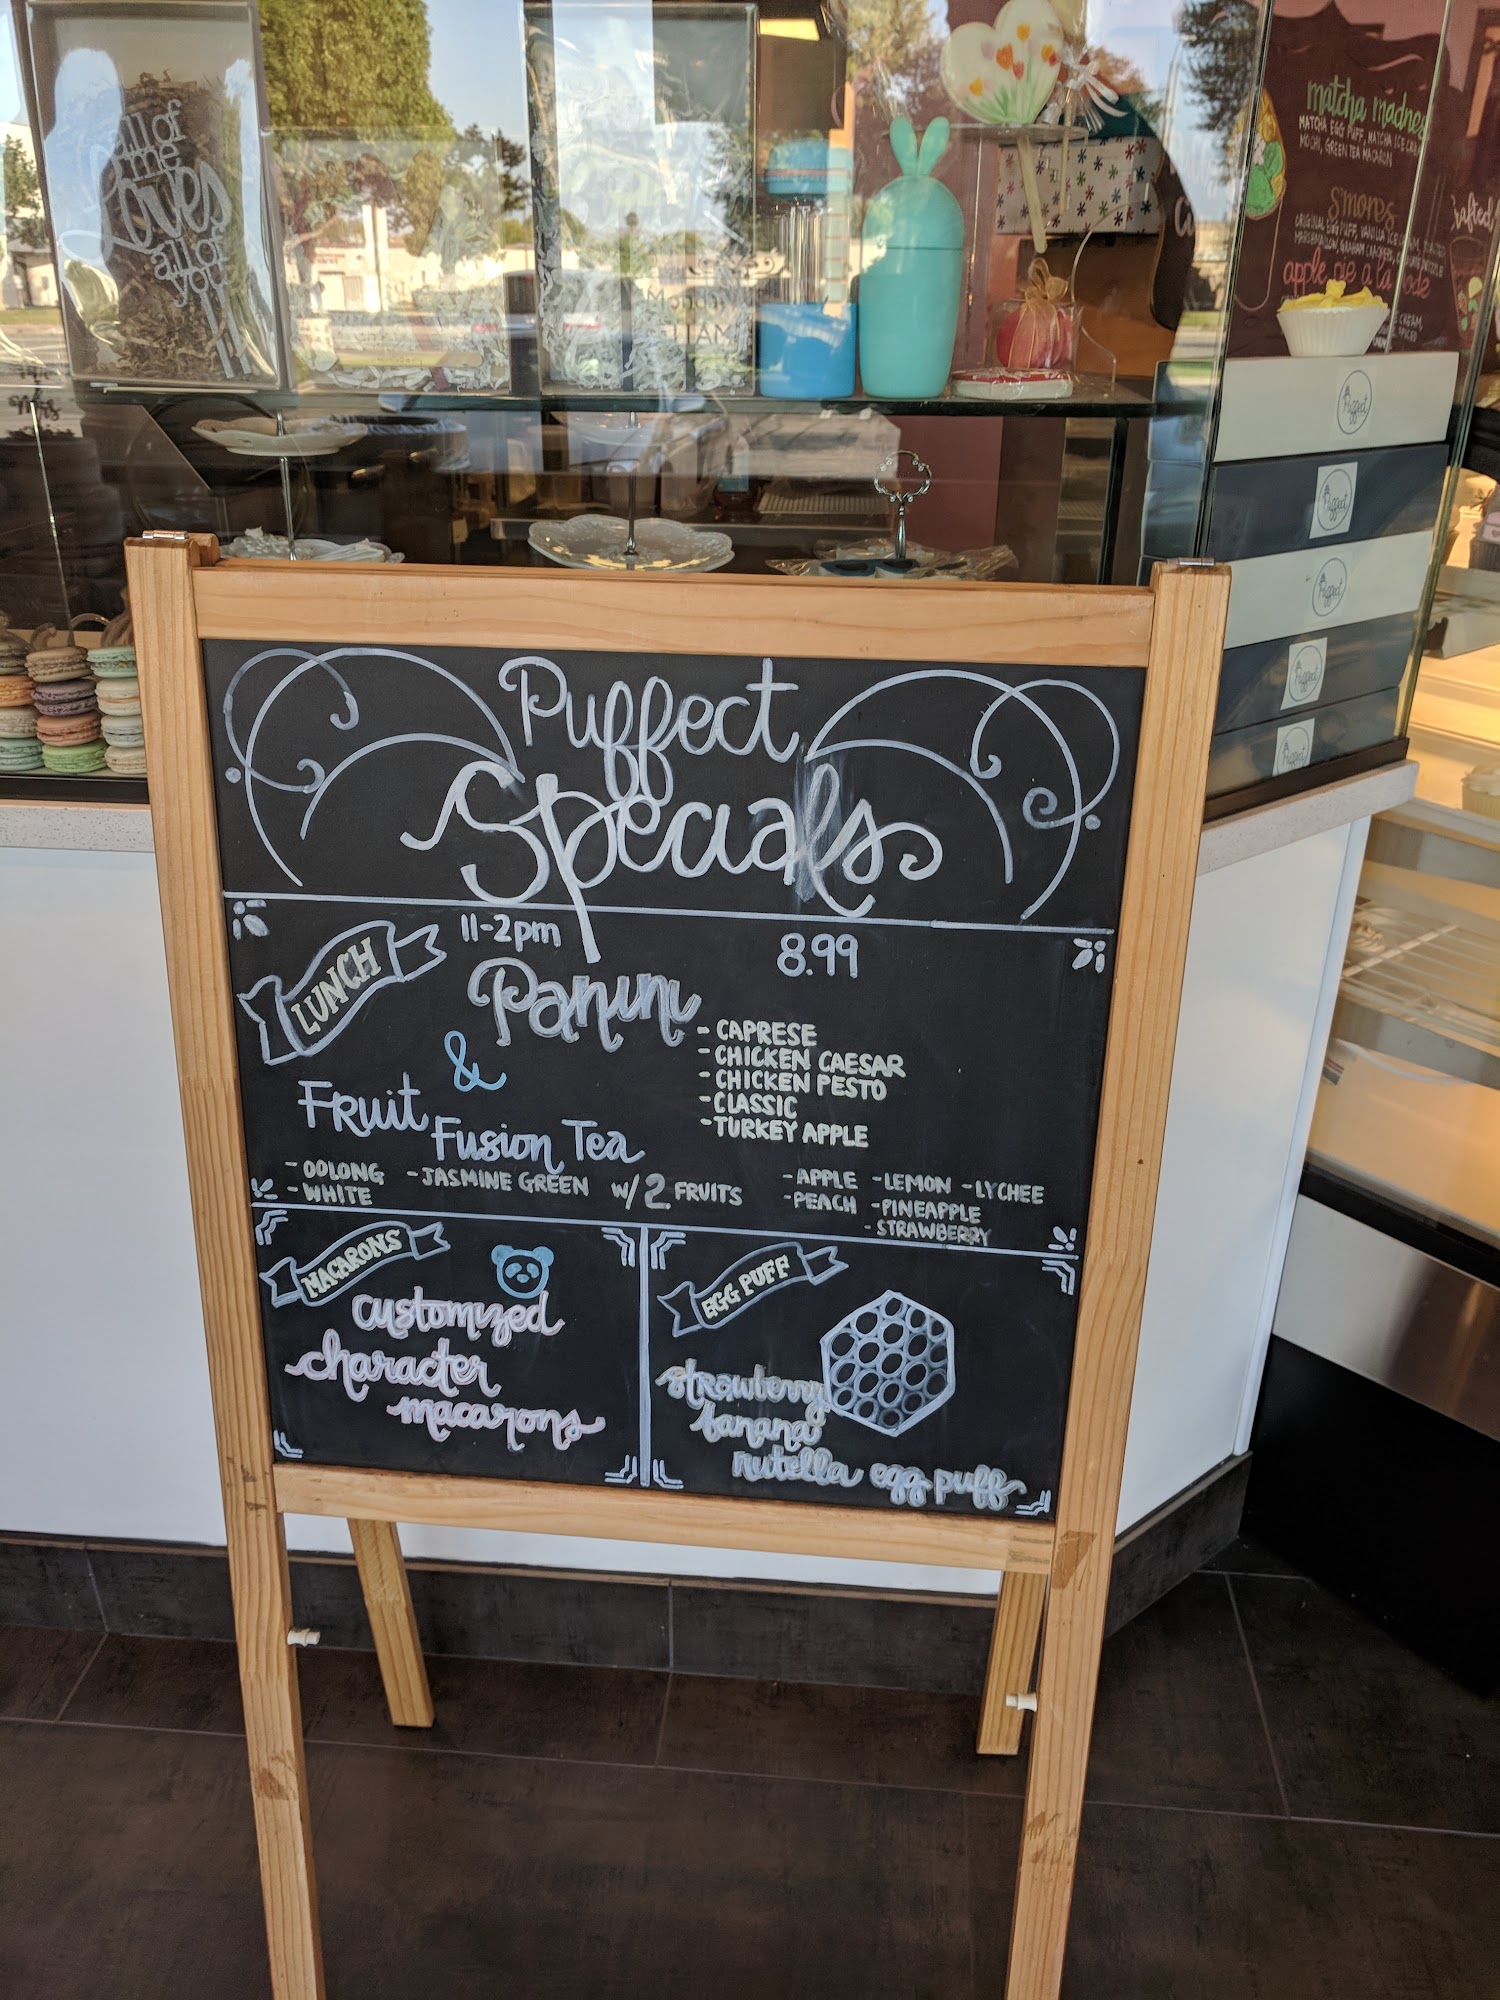 all of
me
loves
all of
you
Mrs
matcha madness
MATCHA EGG PUFF, MATCHA ICE
MOCHI, GREEN TEA MACARON
s'mores
ORIGINAL EGG PUFF, VANILLA ICE
MARSHMALLOW, GRAHAM CRACKERS,
apple pie a la mode
CREAM,
Puffect
Puffect
Puffect
Puffect
Puffect
Puffect
Specials
LUNCH
11-2pm
8.99
Panini
- CAPRESE
- CHICKEN CAESAR
- CHICKEN PESTO
- CLASSIC
- TURKEY APPLE
&
Fruit Fusion Tea
- OOLONG - JASMINE GREEN w/ 2 FRUITS - APPLE - LEMON - LYCHEE
- WHITE - PEACH - PINEAPPLE
- STRAWBERRY
MACARONS
customized
character
macarons
EGG PUFF
strawberry
banana
nutella egg puff